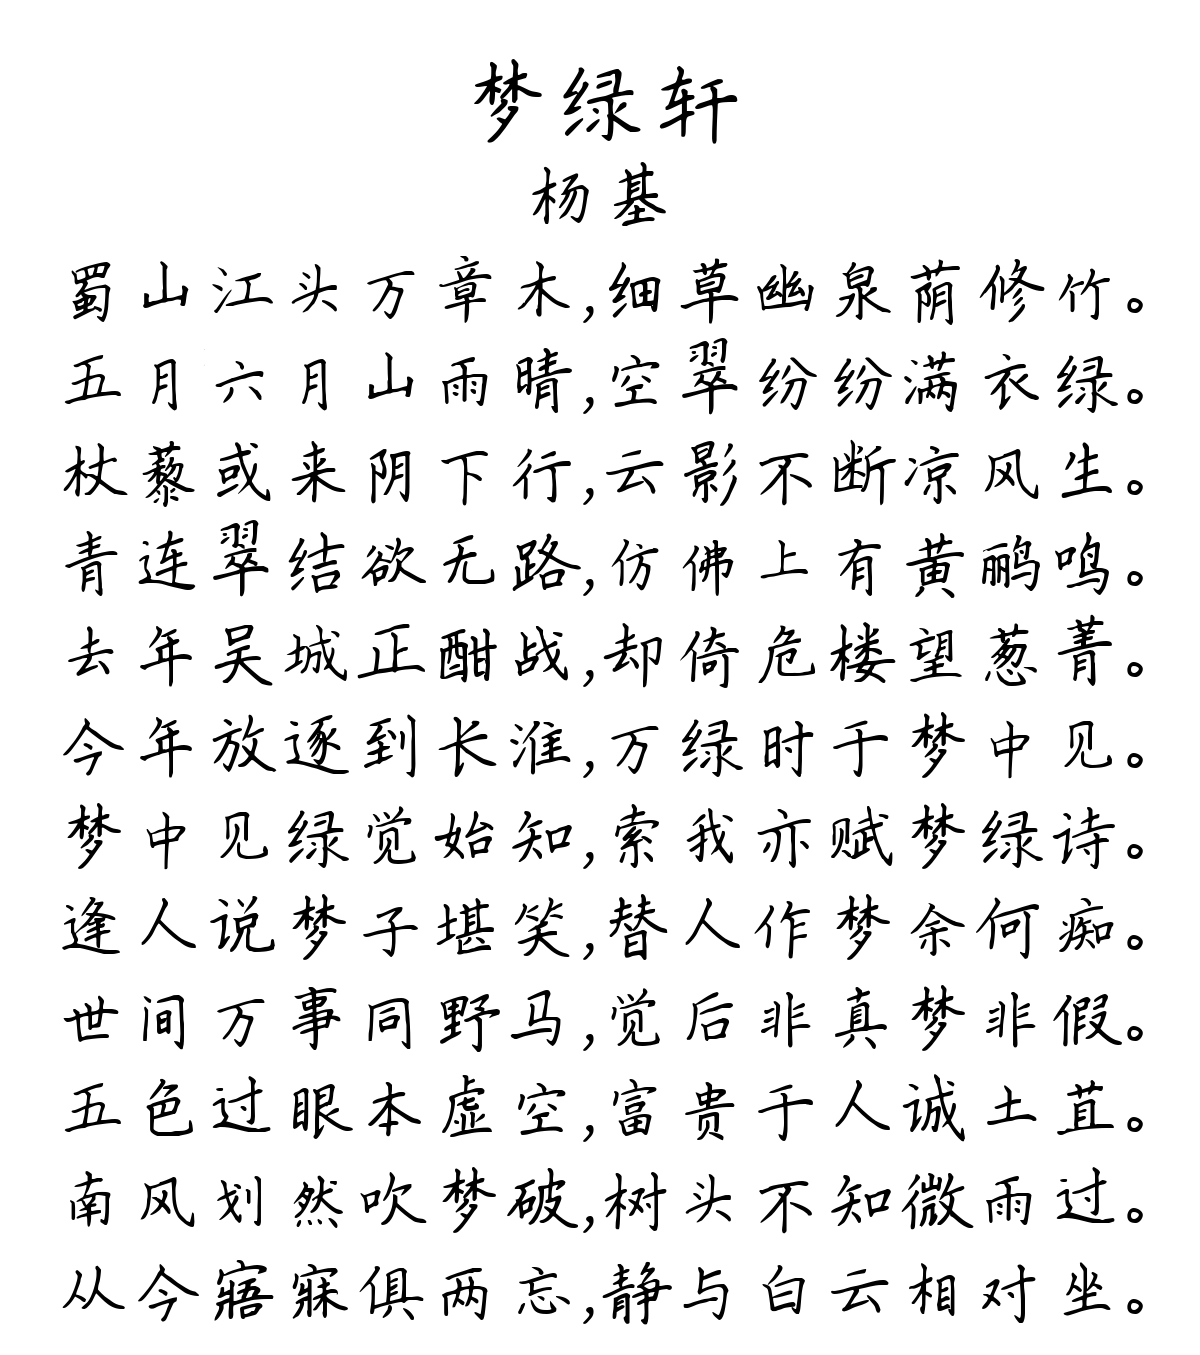 梦绿轩
杨基
蜀山江头万章木,细草幽泉荫修竹。
五月六月山雨晴,空翠纷纷满衣绿。
杖藜或来阴下行,云影不断凉风生。
青连翠结欲无路,仿佛上有黄鹂鸣。
去年吴城正酣战,却倚危楼望葱菁。
今年放逐到长淮,万绿时于梦中见。
梦中见绿觉始知,索我亦赋梦绿诗。
逢人说梦子堪笑,替人作梦余何痴。
世间万事同野马,觉后非真梦非假。
五色过眼本虚空,富贵于人诚土苴。
南风划然吹梦破,树头不知微雨过。
从今寤寐俱两忘,静与白云相对坐。